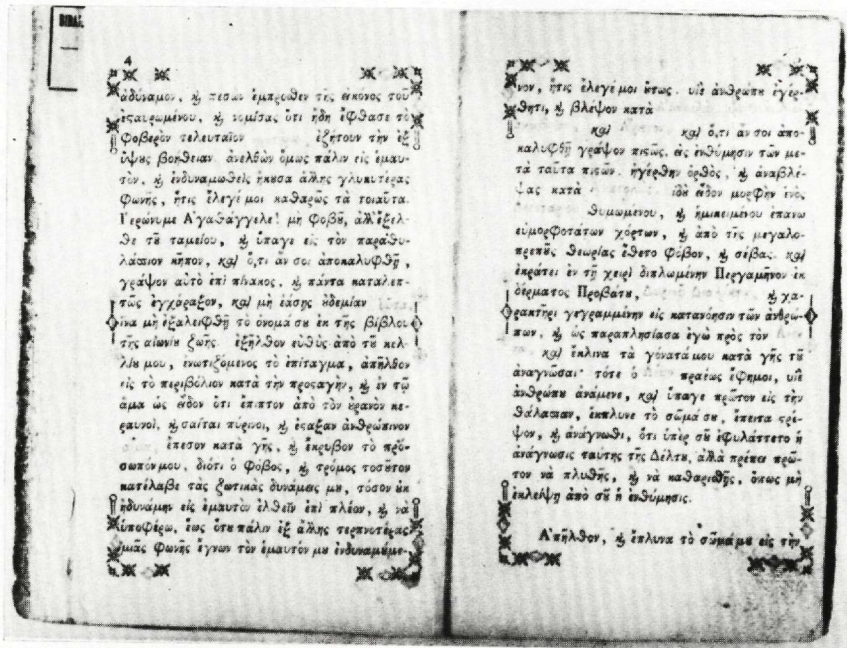 ΒΙΒΛ.
4
ἀδύναμον, ϗ πεσὼν ἔμπροσθεν τῆς εἰκόνος τοῦ
ἐσταυρωμένου, ϗ νομίσας ὅτι ἤδη ἔφθασε τὸ
Φοβερὸν τελευταῖον ἐζήτουν τὴν ἐξ
ὕψους βοήθειαν ἀνελθὼν ὅμως πάλιν εἰς ἐμαυ-
τὸν, ϗ ἐνδυναμωθεὶς ἤκουσα ἄλλης γλυκυτέρας
Φωνῆς, ἥτις ἔλεγέ μοι καθαρῶς τὰ τοιαῦτα.
Γερώνυμε Ἀγαθάγγελε! μὴ Φοβοῦ, ἀλλ' ἔξελ-
θε τοῦ ταμείου, ϗ ὕπαγε εἰς τὸν παραθα-
λάσσιον κῆπον, καὶ ὅ,τι ἄν σοι ἀποκαλυφθῇ,
γράψον αὐτὸ ἐπὶ πίνακος, ϗ πάντα καταλεπ-
τῶς ἐγχάραξον, καὶ μὴ ἐάσῃς οὐδεμίαν
ἵνα μὴ ἐξαλειφθῇ τὸ ὄνομά σου ἐκ τῆς βίβλου
τῆς αἰωνίου ζωῆς. ἐξῆλθον εὐθὺς ἀπὸ τοῦ κελ-
λίου μου, ἐνωτιζόμενος τὸ ἐπίταγμα, ἀπῆλθον
εἰς τὸ περιβόλιον κατὰ τὴν προσαγὴν, ϗ ἐν τῷ
ἅμα ὡς εἶδον ὅτι ἔπιπτον ἀπὸ τὸν οὐρανὸν κε-
ραυνοὶ, ϗ σαΐται πύρινοι, ϗ ἔσταξαν ἀνθρώπινον
ἔπεσον κατὰ γῆς, ϗ ἔκρυβον τὸ πρό-
σωπόν μου, διότι ὁ Φόβος, ϗ τρόμος τοσοῦτον
κατέλαβε τὰς ζωτικὰς δυνάμεις μου, τόσον οὐκ
ἠδυνάμην εἰς ἐμαυτὸν ἐλθεῖν ἐπὶ πλέον, ϗ νὰ
ὑποφέρω, ἕως ὅτου πάλιν ἐξ ἄλλης τερπνοτέρας
μιᾶς Φωνῆς ἔγνων τὸν ἐμαυτόν μου ἐνδυναμούμε-
νον, ἥτις ἔλεγέ μοι οὕτως. υἱὲ ἀνθρώπου ἐγέρ-
θητι, ϗ βλέψον κατὰ
καὶ καὶ ὅ,τι ἄν σοι ἀπο-
καλυφθῇ γράψον πιστῶς. εἰς ἐνθύμησιν τῶν με-
τὰ ταῦτα πιστῶν. ἠγέρθην ὀρθὸς, ϗ ἀναβλέ-
ψας κατὰ ἰδοὺ εἶδον μορφὴν ἑνὸς
θυμωμένου, ϗ ἡμικειμένου ἐπάνω
εὐμορφοτάτων χόρτων, ϗ ἀπὸ τῆς μεγαλο-
πρεποῦς θεωρίας ἔθετο Φόβον, ϗ σέβας. καὶ
ἐκράτει ἐν τῇ χειρὶ διπλωμένην Περγαμηνὸν ἐκ
δέρματος Προβάτου, ϗ χα-
ρακτῆρι γεγραμμένην εἰς κατανόησιν τῶν ἀνθρώ-
πων, ϗ ὡς παραπλησίασα ἐγὼ πρὸς τὸν
καὶ ἔκλινα τὰ γόνατά μου κατὰ γῆς τοῦ
ἀναγνῶσαι· τότε ὁ πραέως ἔφημοι, υἱὲ
ἀνθρώπου ἀνάμενε, καὶ ὕπαγε πρῶτον εἰς τὴν
θάλασσαν, ἔκπλυνε τὸ σῶμά σου, ἔπειτα τρέ-
ψον, ϗ ἀνάγνωθι, ὅτι ὑπὲρ σοῦ ἐφυλάττετο ἡ
ἀνάγνωσις ταύτης τῆς Δέλτου, ἀλλὰ πρέπει πρῶ-
τον νὰ πλυθῇς, ϗ νὰ καθαρισθῇς, ὅπως μὴ
ἐκλείψῃ ἀπὸ σοῦ ἡ ἐνθύμησις.
Ἀπῆλθον, ϗ ἔπλυνα τὸ σῶμά μου εἰς τὴν